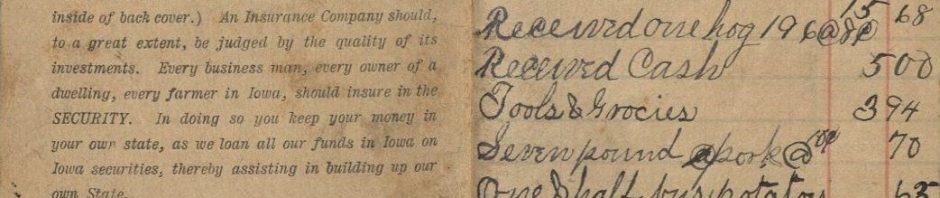 inside of back cover.) An Insurance Company should,
to a great extent, be judged by the quality of its
investments. Every business man, every owner of a
dwelling, every farmer in Iowa, should insure in the
SECURITY. In doing so you keep your money in
your own state, as we loan all our funds in Iowa on
Iowa securities, thereby assisting in building up our
own State.
Received one hog 196@8¢ 15 68
Received Cash 5 00
Tools & Grocies 3 94
Seven pound pork @ 10¢ 70
One & half bus potatoes 63